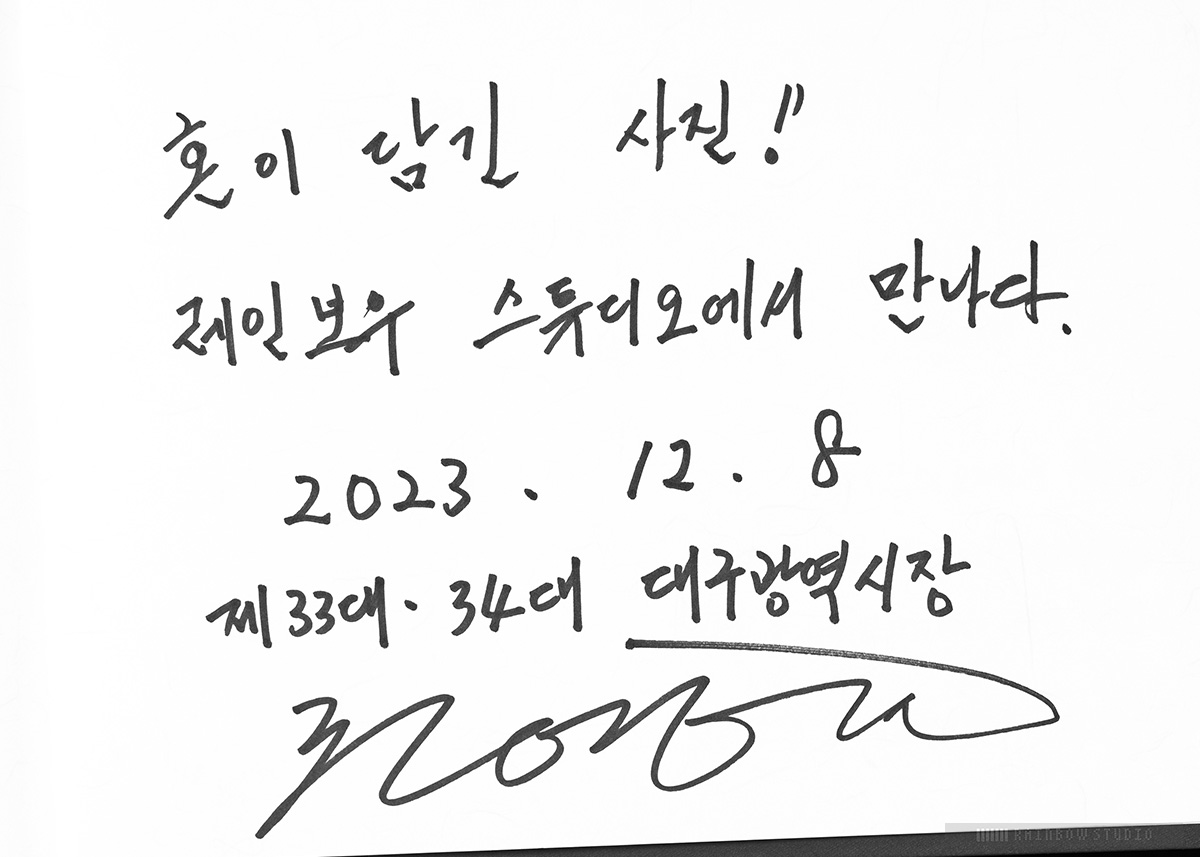 혼이 담긴 사진!!
레인보우 스튜디오에서 만나다.
2023. 12. 8
제33대·34대 대구광역시장
RAINBOW STUDIO